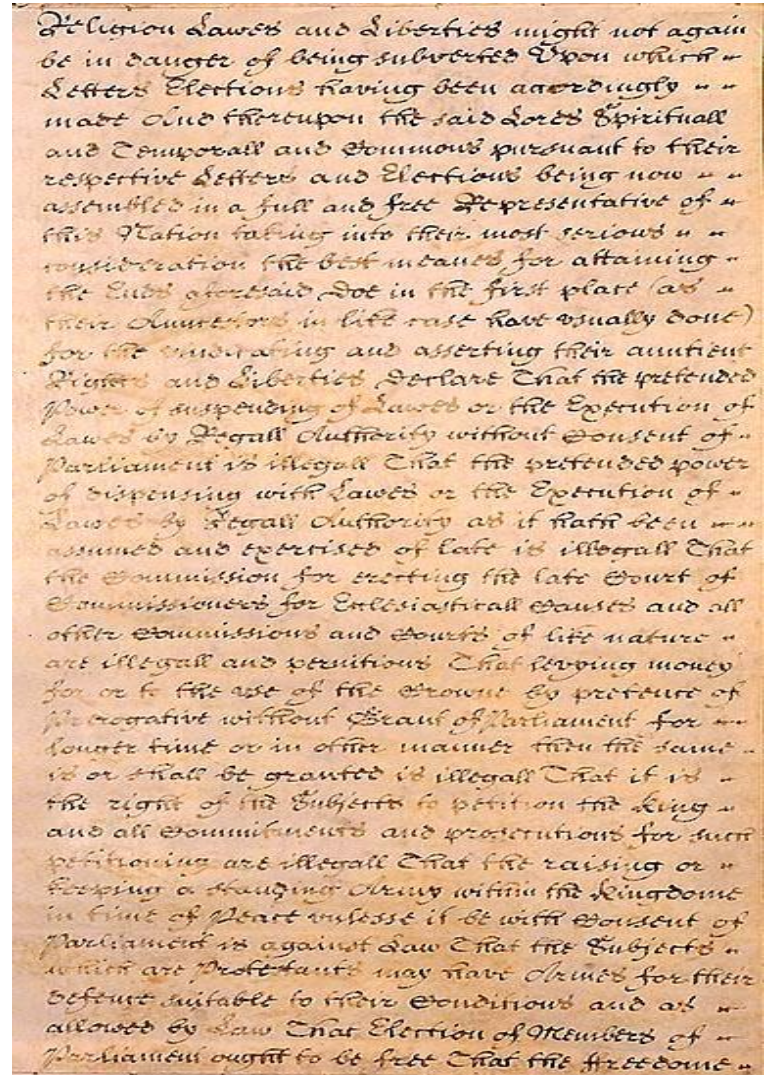 Religion Lawes and Liberties might not again
be in danger of being subverted Upon which
Letters Elections having been accordingly
made And thereupon the said Lords Spirituall
and Temporall and Commons pursuant to their
respective Letters and Elections being now
assembled in a full and free Representative of
this Nation taking into their most seriows
consideration the best meanes for attaining
the Ends aforesaid Doe in the first place (as
their Auncestors in like case have usually done)
for the vindicating and asserting their auntient
Rights and Liberties, Declare That the pretended
Power of suspending of Lawes or the Execution of
Lawes by Regall Authority without Consent of
Parliament is illegall That the pretended power
of dispensing with Lawes or the Execution of
Lawes by Regall Authority as it hath been
assumed and exercised of late is illegall That
the Commission for erecting the late Court of
Commissioners for Ecclesiasticall Causes and all
other Commissions and Courts of like nature
are illegall and pernitious That levying money
for or to the use of the Crowne by pretence of
Prerogative without Grant of Parliament for
longer time or in other manner then the same
is or shall be granted is illegall That it is
the right of the Subjects to petition the King
and all Commitments and prosecutions for such
petitioning are illegall That the raising or
keeping a standing Army within the Kingdome
in time of Peace unlesse it be with Consent of
Parliament is against Law That the Subjects
which are Protestants may have Armes for their
defence suitable to their Conditions and as
allowed by Law That Election of Members of
Parliament ought to be free That the ffreedome